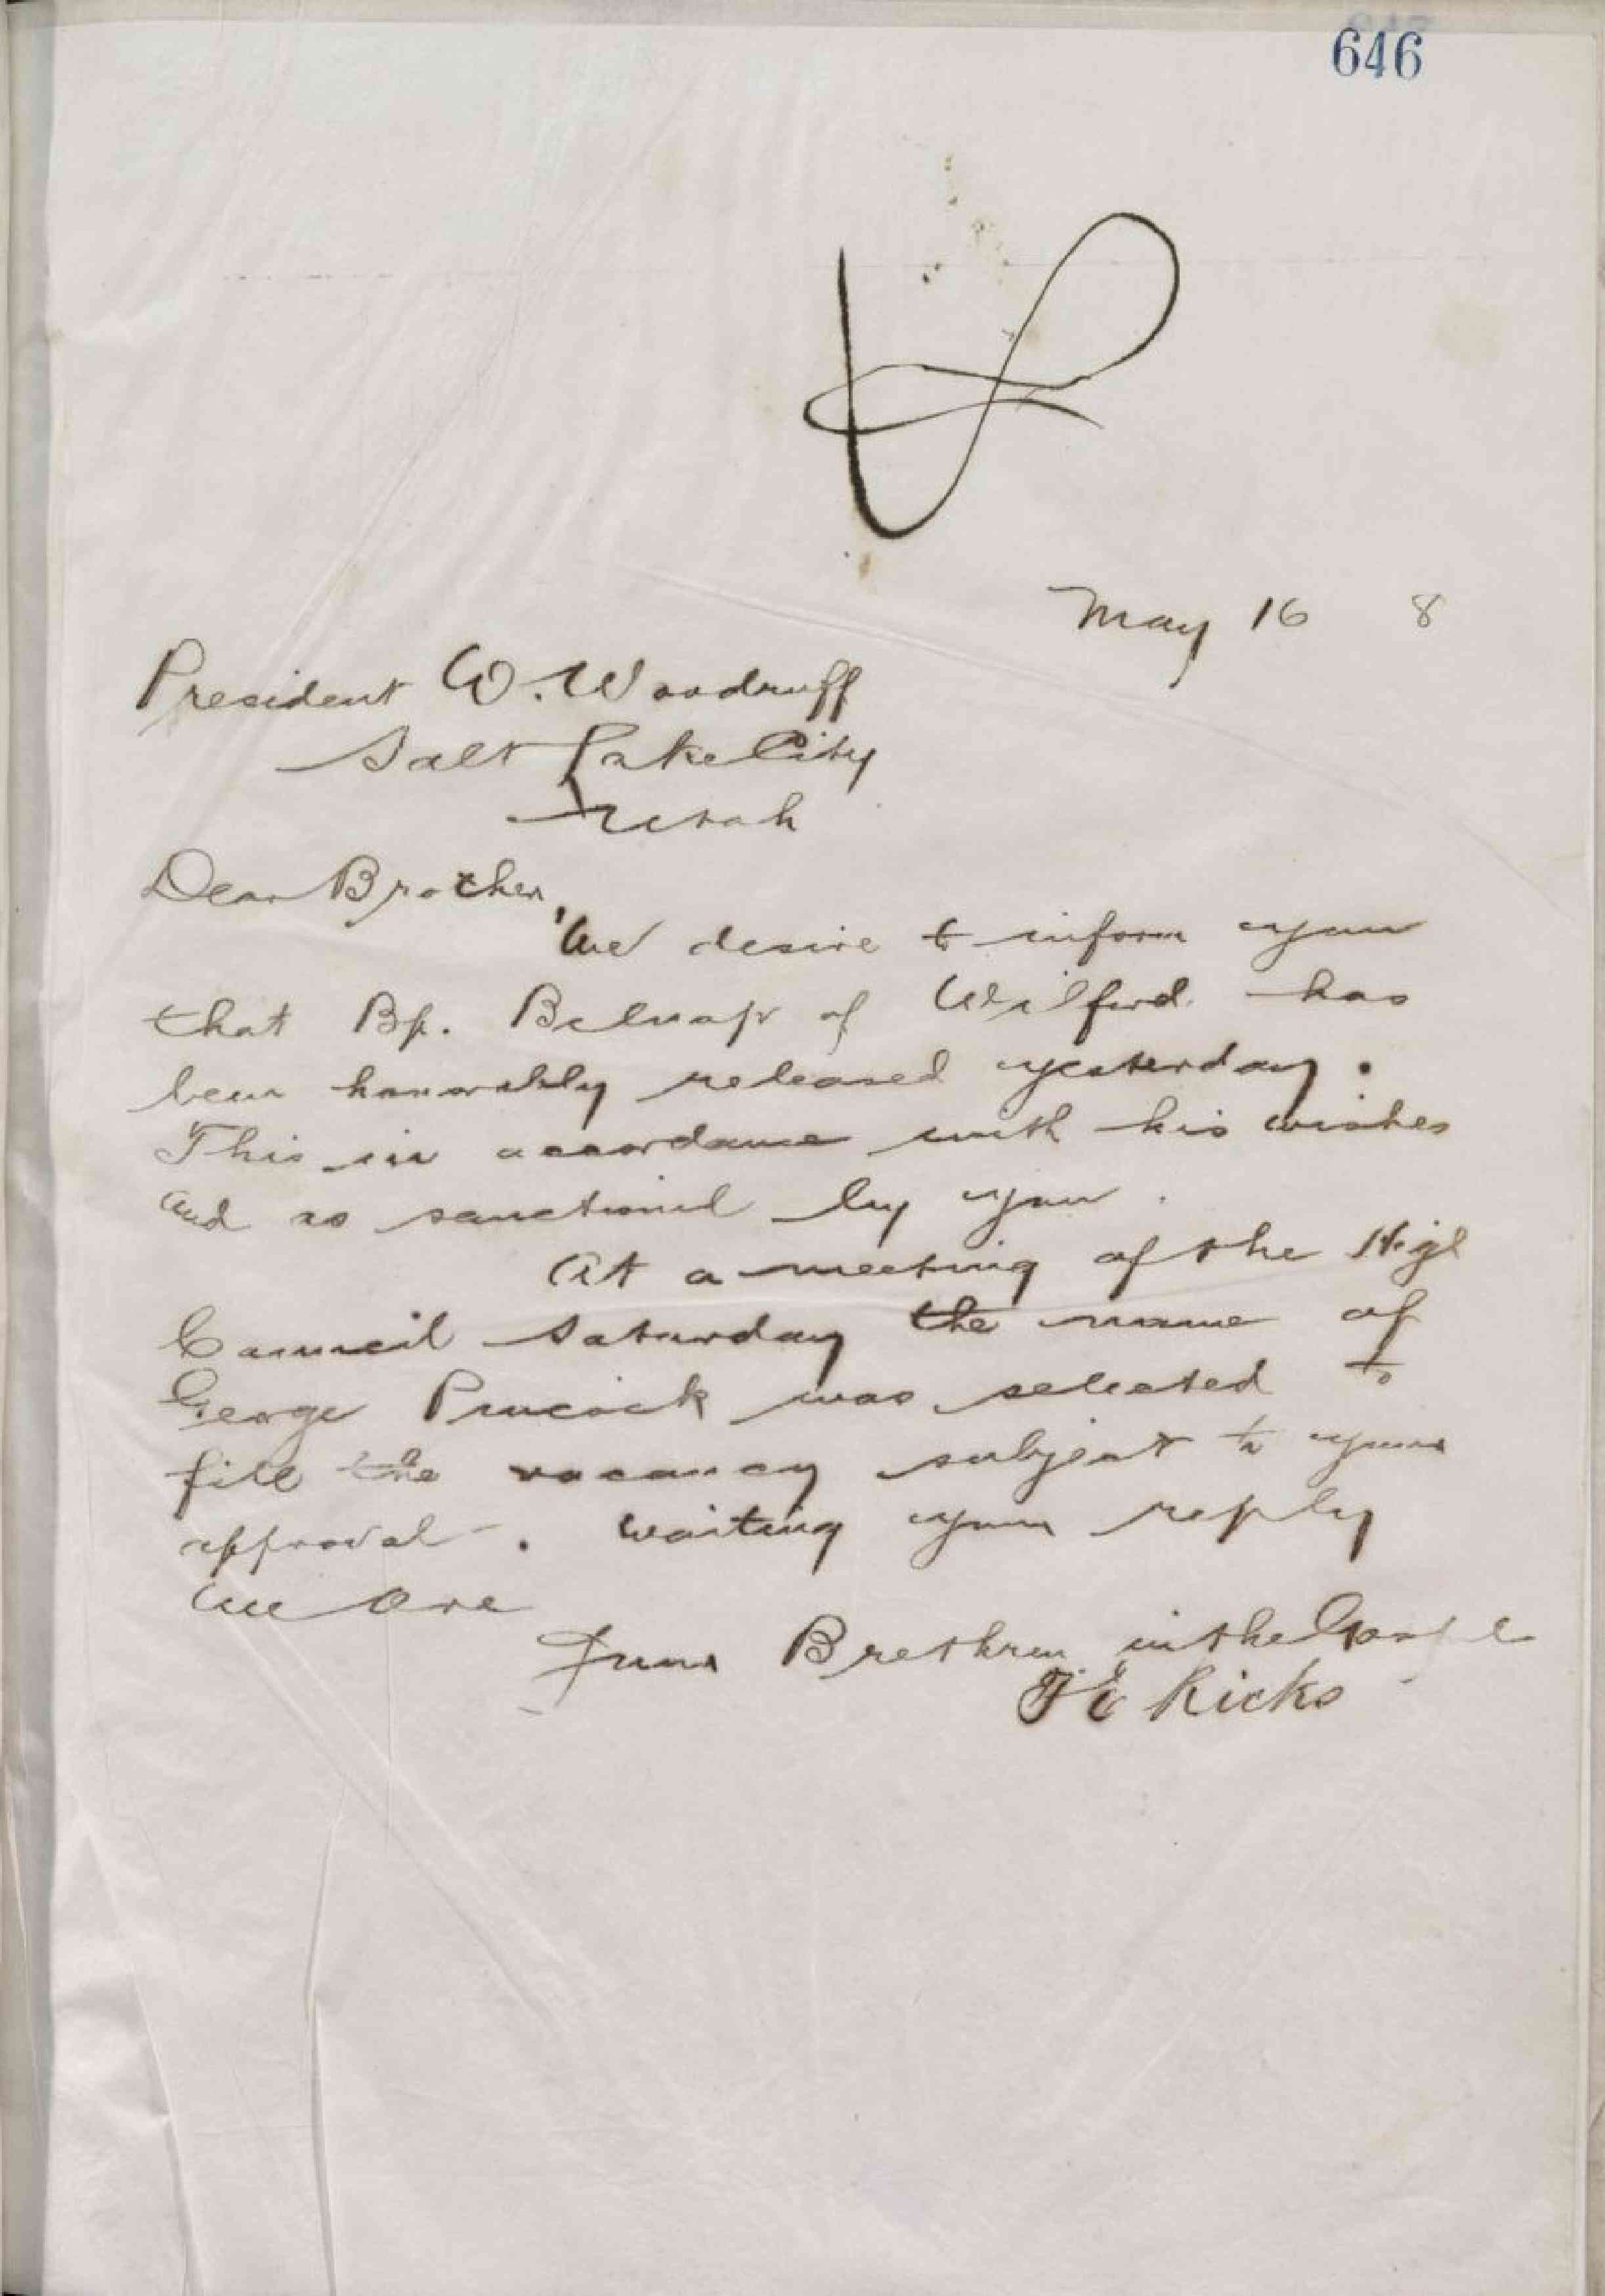 646
May 16 8
President W. Woodruff
Salt Lake City
Utah
Dear Brother,
We desire to inform you
that Bp. Belnap of Wilford has
been honorably released yesterday.
This in accordance with his wishes
and as sanctioned by you.
At a meeting of the High
Council Saturday the name of
George was selected to
fill the vacancy subject to your
approval. Waiting your reply
we are
Your Brethren in the Gospel
T E Ricks